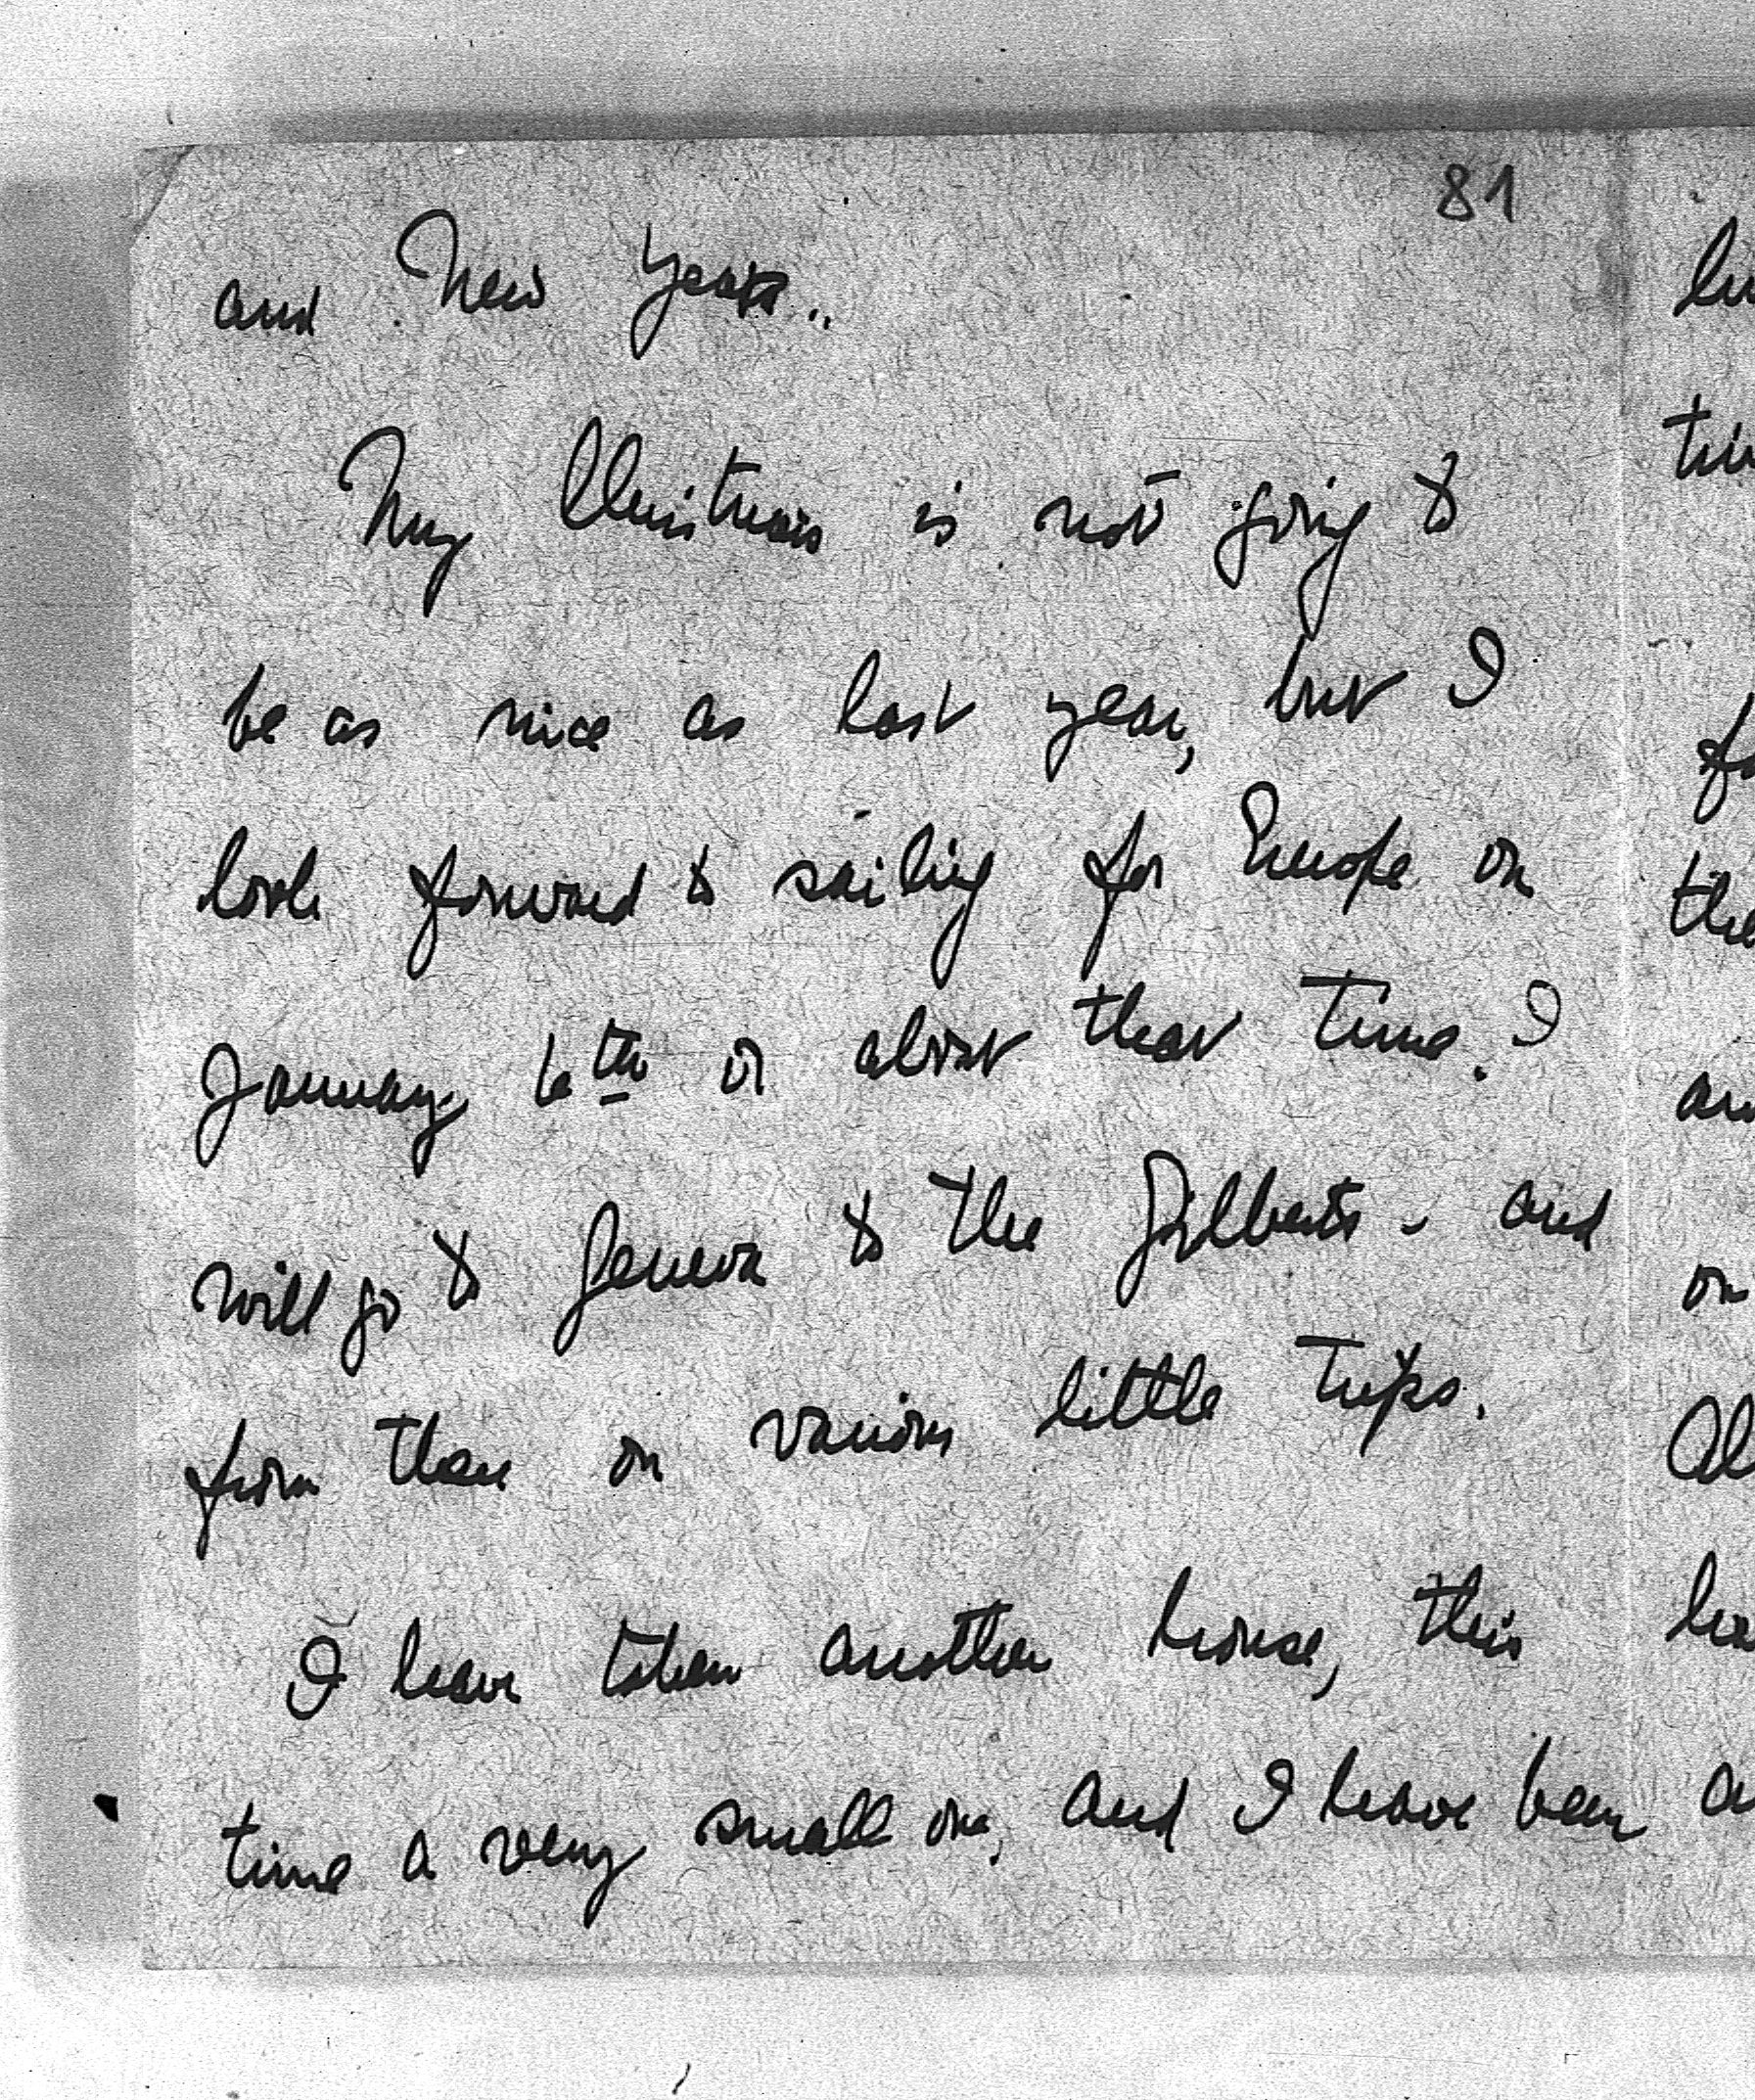 81
and New Years..
My Christmas is not going to
be as nice as last year, but I
look forward to sailing for Europe on
January 6th or about that time. I
will go to Geneva to the Gilberts - and
from there on various little trips.
I have taken another house, this
time a very small one, and I have been